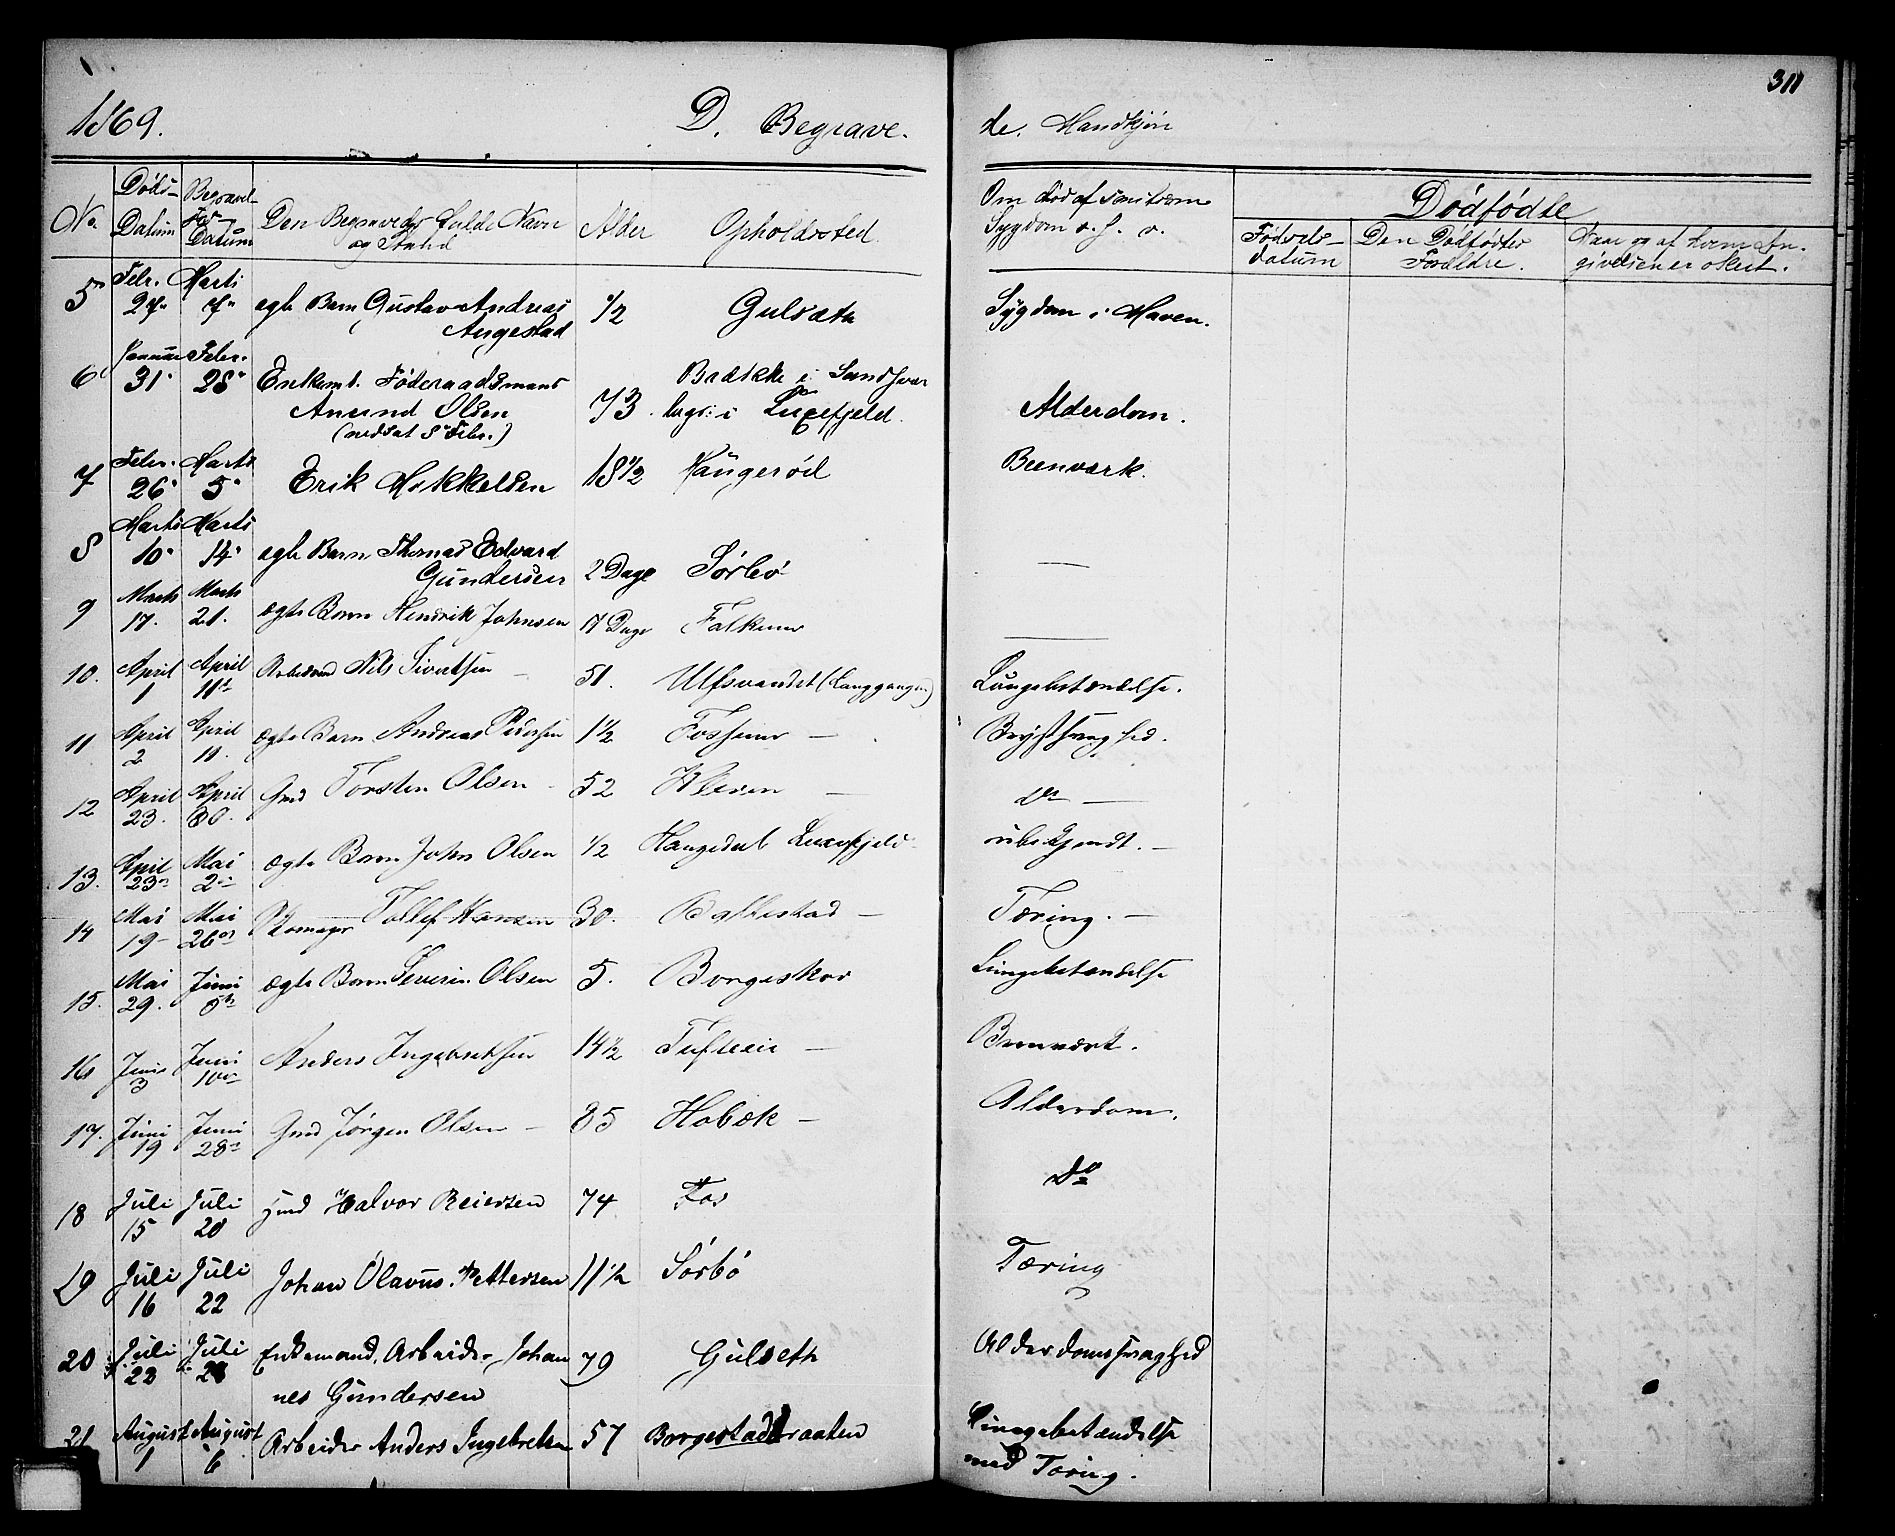 311
1869. D. Begrave- de. Mandkjøn
No. Døds-Datum Begravel-ses-Datum Den Begravedes fulde Navn og Stand Alder Opholdssted. Om død af Sygdom o. s. v. Dødfødte
Fødsels-datum Den Dødfødtes Forældre. Naar og af hvem An-givelsen er skeet.
5 Febr. 27 Marts 7 ægte Barn Gustav Andreas 1/2 Gulsæth Sygdom i Maven.
Augestad
6 Januar 31 Febr. 28 Enkem. Føderaadsmand 73. Alderdom.
Anund Olsen i Luxefjeld.
(nedsat 8 Febr.)
7 Febr. 26 Marts 5 Erik Mikkelsen 18 1/2 Haugerød Beenværk.
8 Marts 10 Marts 14 ægte Barn Thomas Edvard
Gundersen 2 Dage Sørbø —
9 Marts 17. Marts 21. ægte Barn Hendrik Johnsen 17 Dage Falkum —
10. April 1 April 11 Nils Sivertsen 51. Ulfsvandet (Langgangen) Lungebetændelse.
11 April 2 April 11. ægte Barn Andreas Pedersen 1 1/2 Fossum — Brystsvaghed.
12 April 23. April 30. Gmd Torsten Olsen 52 Kleven — do —
13. April 23 Mai 2 ægte Barn John Olsen 1/2 Luxefjeld ubekjendt. —
14 Mai 19 Mai 26 Tollef Hansen 30. Ballestad — Tæring. —
15. Mai 29. Juni 5 ægte Barn Severin Olsen 5. Borgeskov Lungebetændelse
16 Juni 3 Juni 10 Anders Ingebretsen 14 1/2 Tufteeie — Beenværk.
17. Juni 19 Juni 28 Gmd Jørgen Olsen — 85 Hobæk — Alderdom.
18 Juli 15 Juli 20 Gmd Halvor Reiersen 74 Fos Do
19 Juli 16 Juli 22 Johan Olavus Pettersen 11 1/2 Sørbø Tæring
20 Juli 23 Juli 28 Enkemand, Arbeider Johan 79 Gulseth Alderdomssvaghed
nes Gundersen
21 August 1 August 6 Arbeider Anders Ingebretsen 57 Borgestadbraaten Lungebetændelse
med Tæring.